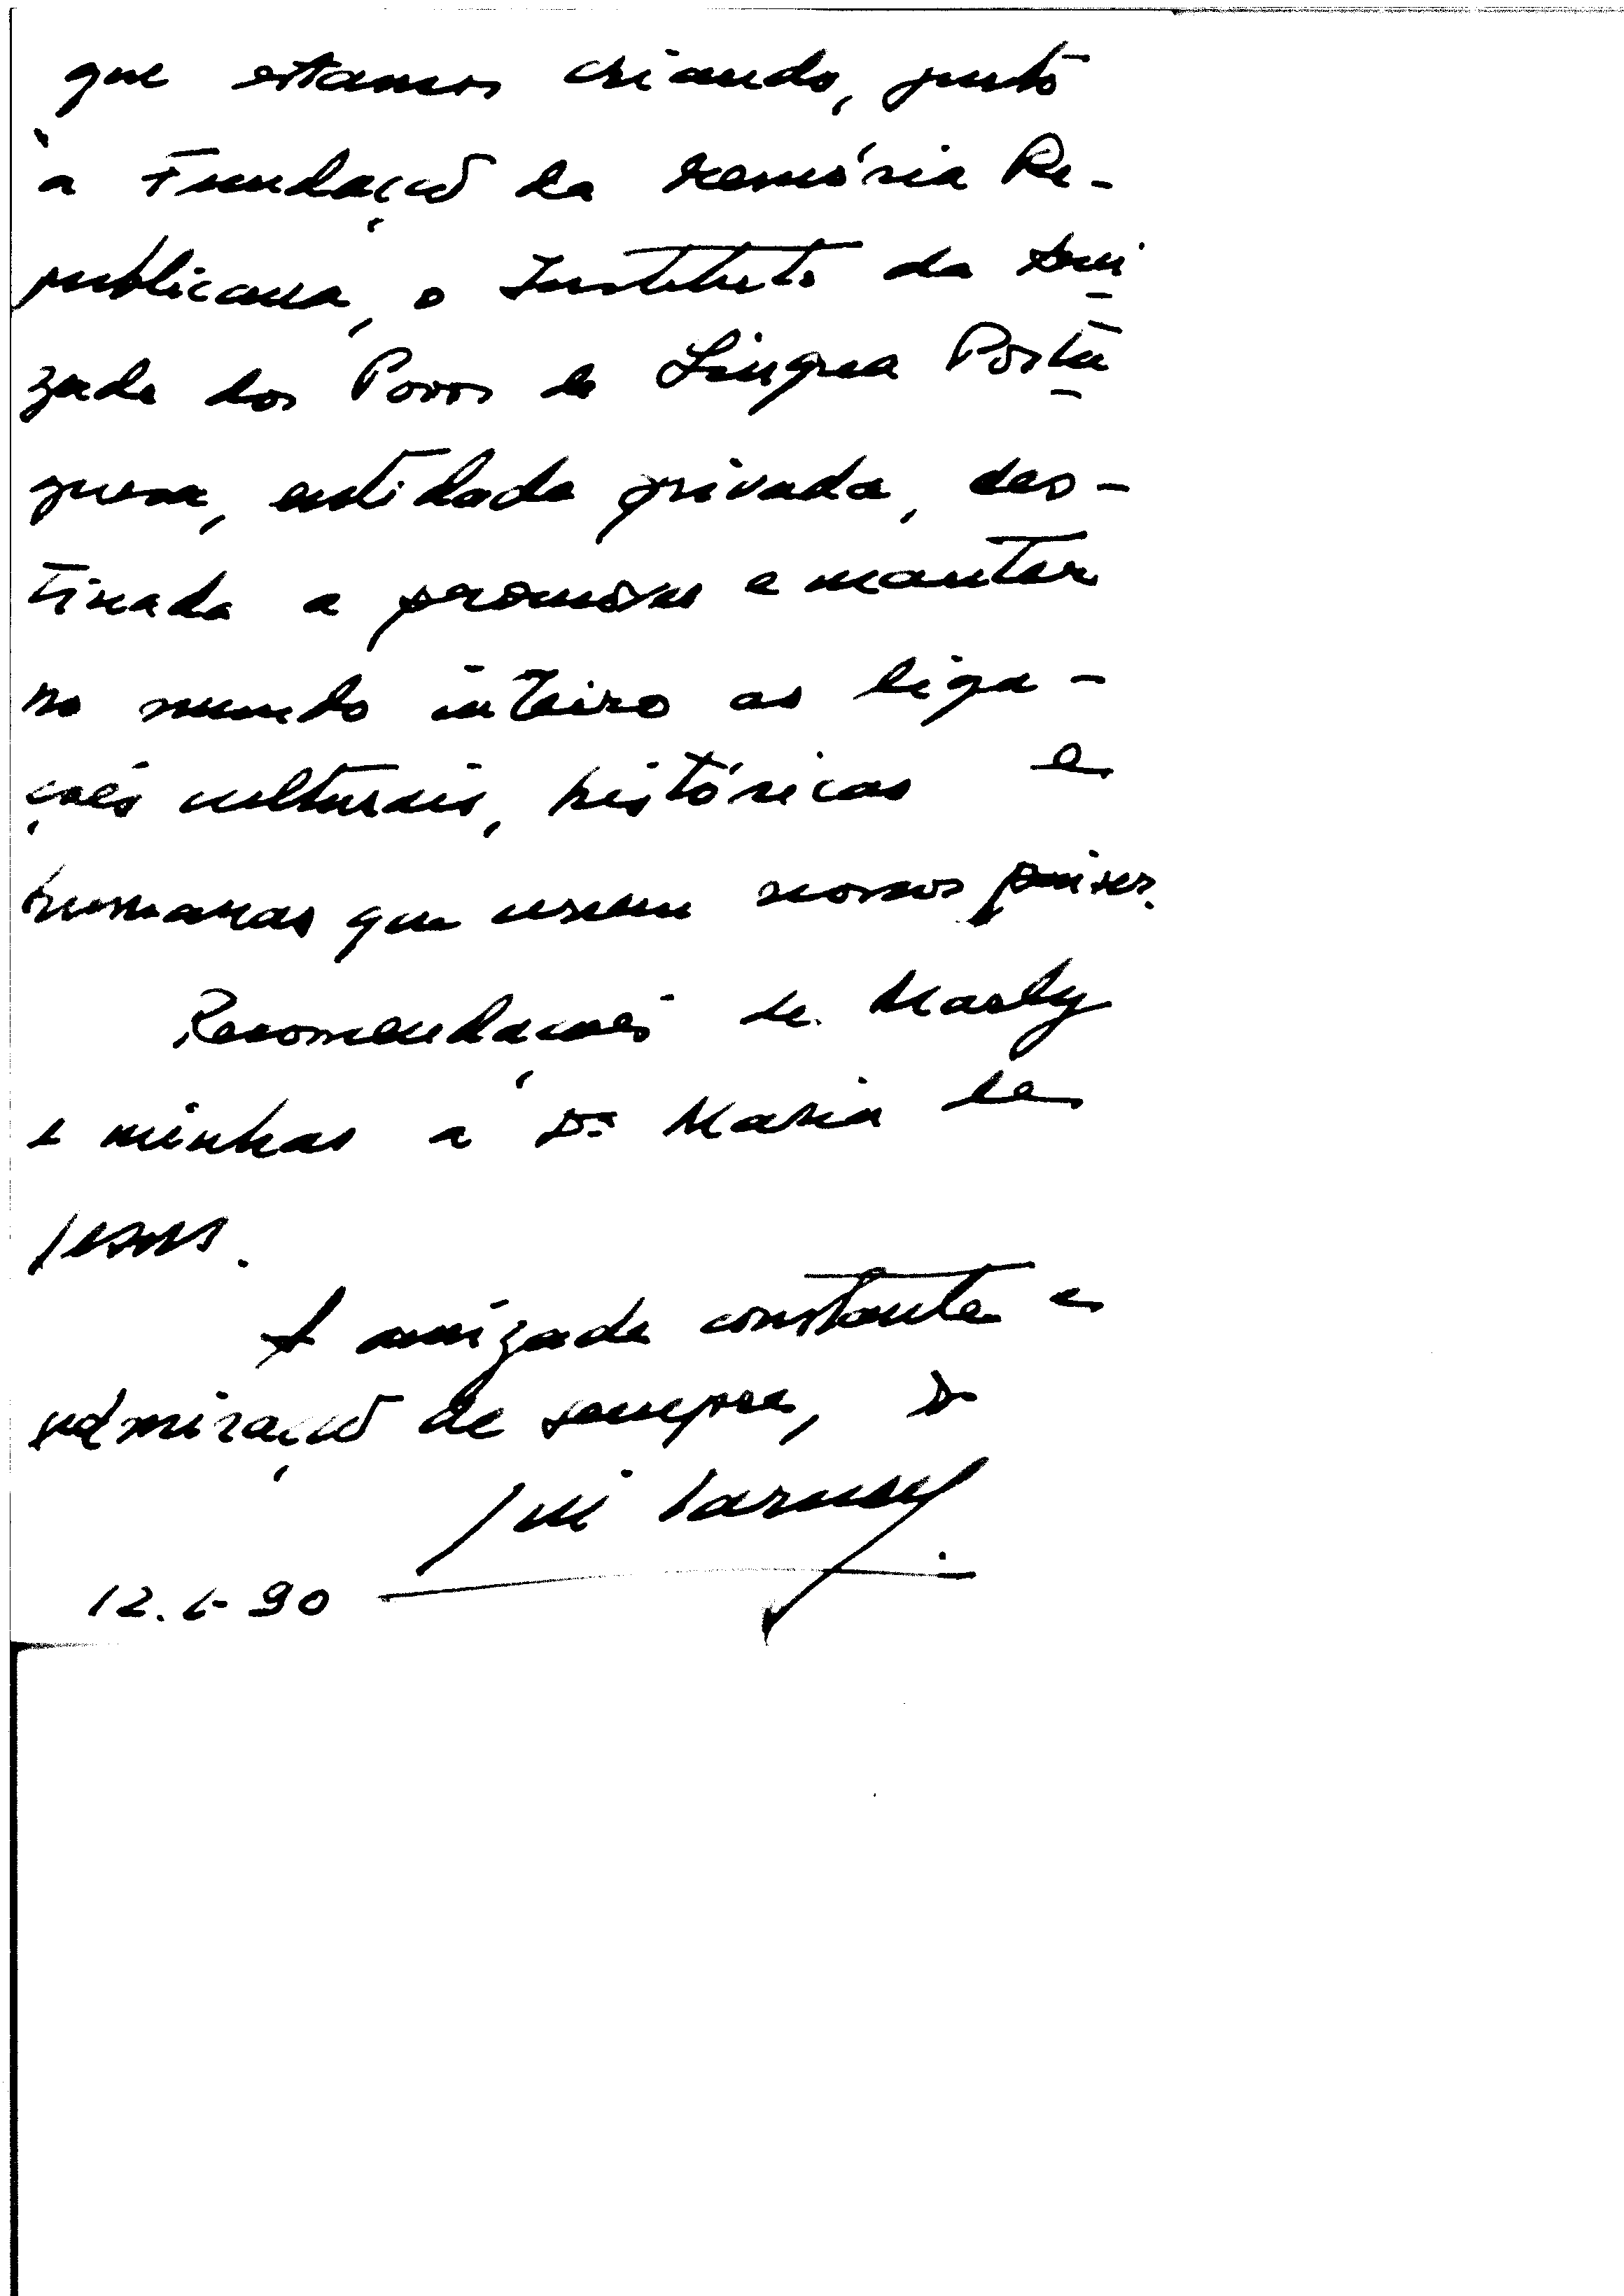 que estamos criando, junto
à Fundação da Memória Re-
publicana, o Instituto da Ami-
zade dos Povos de Língua Portu-
guesa, entidade privada, des-
tinada a promover e manter
no mundo inteiro as liga-
ções culturais, históricas e
humanas que unem nossos países.
Recomendações de Marly
e minhas a Dª Maria de
Jesus.
A amizade constante e
admiração de sempre, do
José Sarney
12.6-90